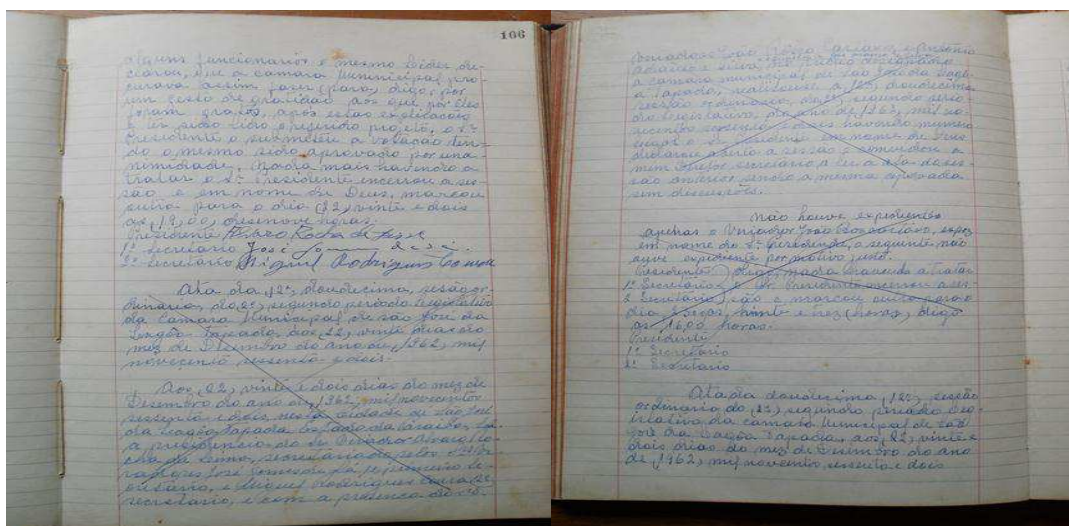 106
alguns funcionarios e mesmo lider de-
clarou, que a camara Municipal pro-
curava assim fazer (para) digo, por
um gesto de gratidão aos que por eles
foram gratos, após estas explicação
e ter sido lido o referido projeto, o sr.
Presidente o submeteu a votação ten-
do o mesmo sido aprovado por una-
nimidade. Nada mais havendo a
tratar o sr. Presidente encerrou a ses-
são e em nome de Deus, marcou
outra para o dia (22) vinte e dois
as, 19,00, desenove horas.
Presidente Rocha de
1º Secretario José Gomes de Sá.
2º Secretario Miguel Rodrigues
Ata da, 12ª, doudecima, sesão or-
dinaria, do 2º, segundo periodo legislativo
da Camara Municipal de São José da
Lagôa Tapada, aos, 22, vinte dois do
mez de Dezembro do ano de, 1962, mil
novecento sessenta e dois.
Aos, 22, vinte e dois dias do mez de
Desembro do ano de, 1962, mil novecentos
sessenta e dois, nesta cidade de São José
da Lagôa Tapada Estado da Paraiba, sob
a presidencia do sr.
secretariado pelos
José Gomes de Sá, primeiro se-
cretario, e Miguel Rodrigues
secretario, e com a presença dos
João
a camara municipal de São José da Lagô-
a Tapada, realisouse a 12ª, doudecima
sessão ordinaria, do 2º segundo perio-
do legislativo, do ano de, 1962, mil no-
vecentos sessenta e dois, havendo numero
legal o sr. presidente em nome de Deus
declarou aberta a sessão e convidou a
mim secretario, a ler a ata da ses-
são anterior sendo a mesma aprovada
sem discussões.
não houve expediente
apenas o Veriador João expoz
em nome do sr. Presidente, o seguinte não
ouve expediente por motivo, justo.
Presidente) digo, nada havendo a tratar
1º Secretario o sr. Presidente encerrou a ses-
2º Secretario) são e marcou outra para o
dia
as, 1600 horas.
Presidente
1º Secretario
2º Secretario
Ata da doudecima, 12ª, sesão
ordinaria do, 2º, segundo periodo leg-
islativo da camara Municipal de São
José da Lagôa Tapada, aos, 22, vinte e
dois dias do mez de Desembro do ano
de, 1962, mil novecento, sessenta e dois